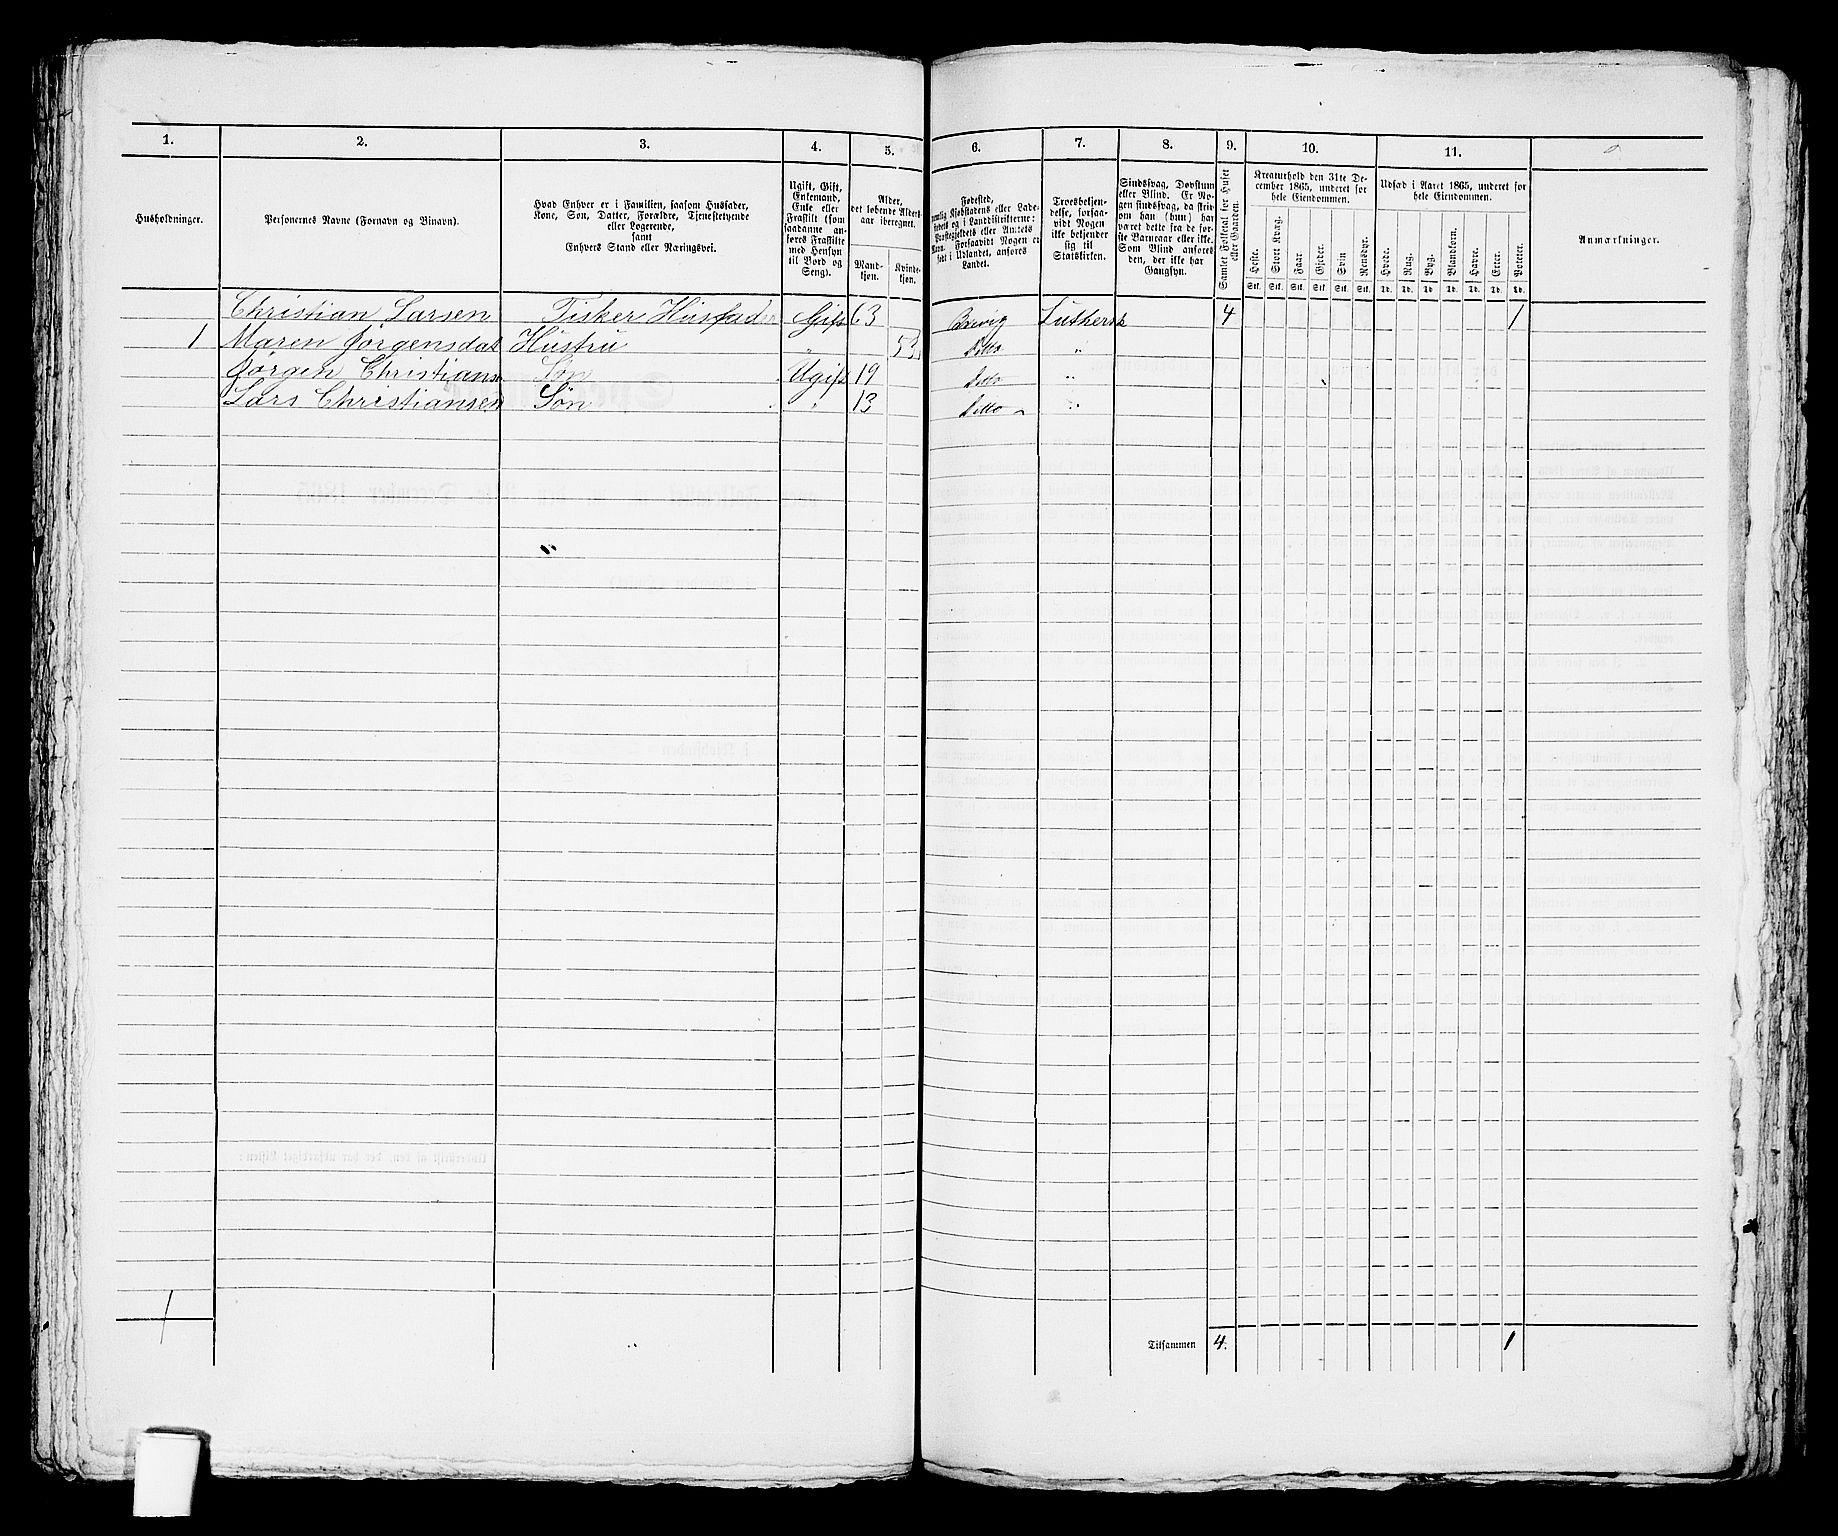 1. 2. 3. 4. 5. 6. 7. 8. 9. 10. 11.
Husholdninger.
Personernes Navne (Fornavn og Binavn).
Hvad Enhver er i Familien, saasom Husfader,
Kone, Søn, Datter, Forældre, Tjenestetyende
eller Logerende,
samt
Enhvers Stand eller Næringsvei.
Ugift, Gift,
Enkemand,
Enke eller
Fraskilt (som
saadanne an-
føres Fraskilte
med Hensyn
til Bord og
Seng).
Alder,
det løbende Alders-
aar iberegnet.
Mand-
kjøn.
Kvinde-
kjøn.
Fødested,
nemlig Kjøbstadens eller Lade-
stedets og i Landdistrikterne:
Præstegjeldets eller Amtets
Navn. Forsaavidt Nogen er
født i Udlandet, anføres
Landet.
Troesbekjen-
delse, forsaa-
vidt Nogen
ikke bekjender
sig til
Statskirken.
Sindssvag, Døvstum
eller Blind. Er No-
gen sindssvag, da skri-
ves om han (hun) har
været dette fra de før-
ste Barneaar eller ikke.
Som Blind anføres
den, der ikke har
Gangsyn.
Samlet Folketal for Huset
eller Gaarden.
Kreaturhold den 31te De-
cember 1865, underet for
hele Eiendommen.
Heste. Stort Kvæg. Faar. Gjeder. Svin Rensdyr.
Stk. Stk. Stk. Stk. Stk. Stk.
Udsæd i Aaret 1865, underet for
hele Eiendommen.
Hvede. Rug. Byg. Blandkorn. Havre. Erter. Poteter.
Td. Td. Td. Td. Td. Td. Td.
Anmærkninger.
Christian Larsen Fisker Husfader Gift 63 Brevig Luthersk 4 1
1 Maren Jørgensdat Hustru " 53 Ditto "
Jørgen Christians Søn Ugift 19 Ditto "
Lars Christiansen Søn " 13 Ditto "
1 Tilsammen 4. 1